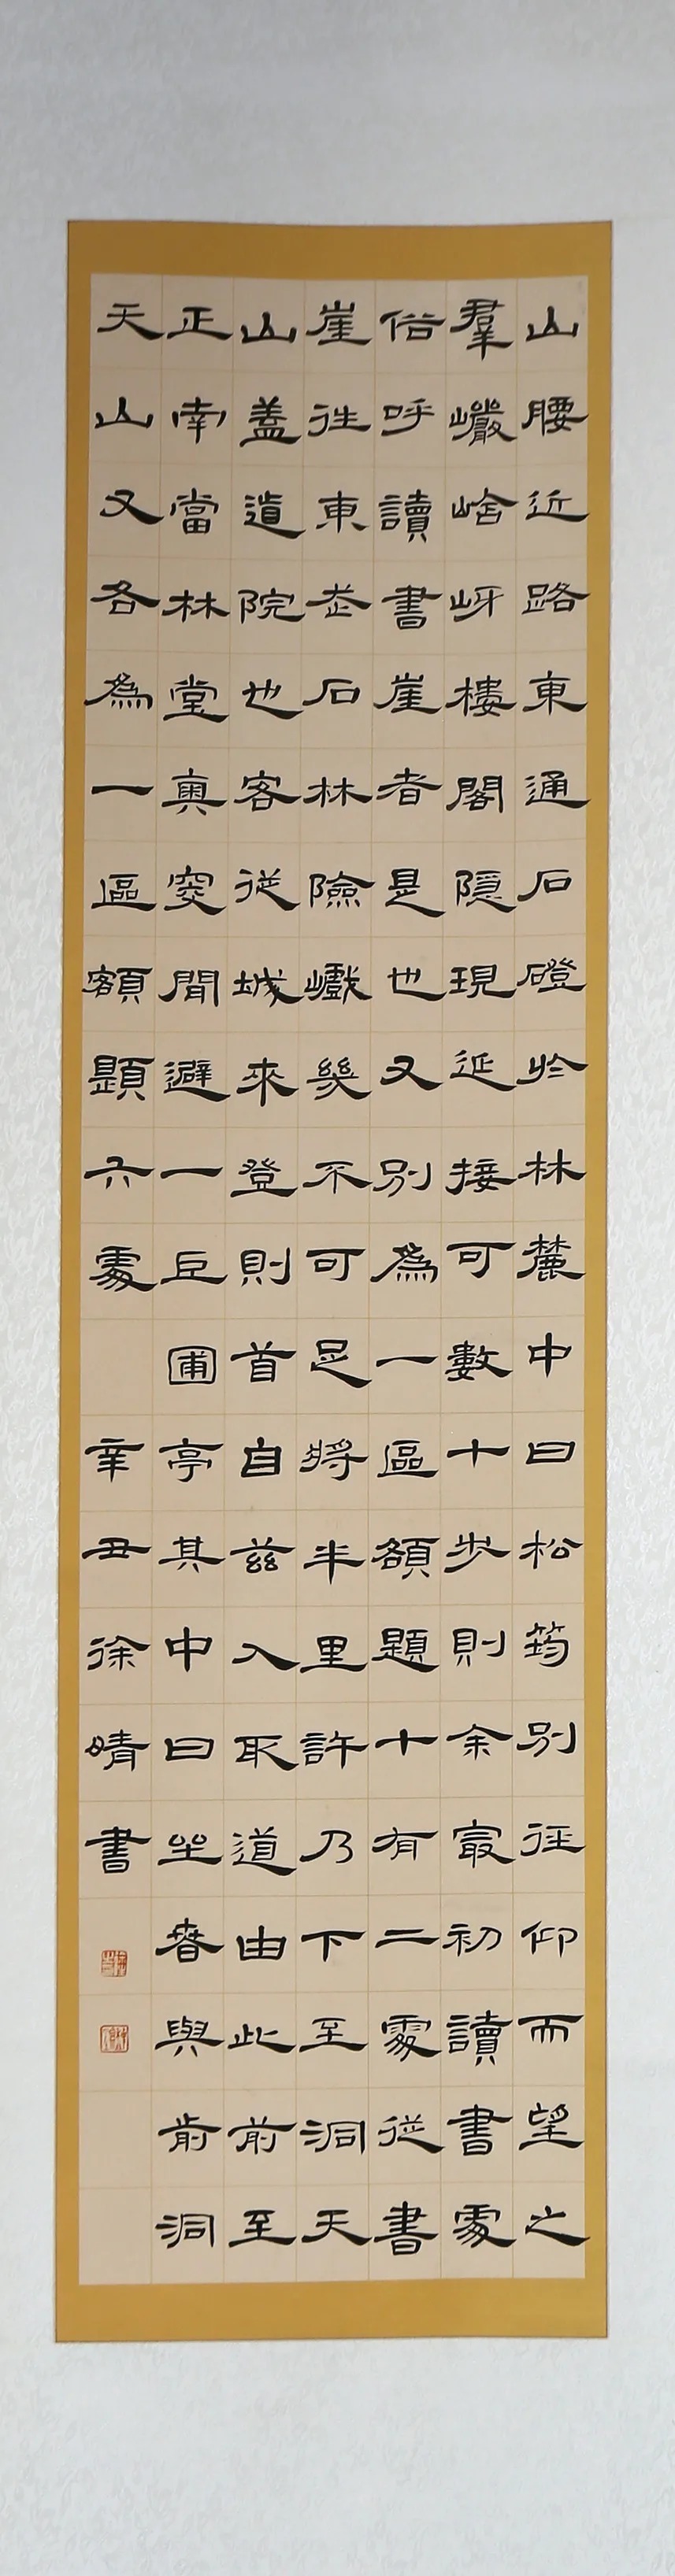 山腰近路東通石磴於林麓中曰松筠別徑仰而望之
羣巖谽岈樓閣隱現延接可數十步則余最初讀書處
俗呼讀書崖者是也又別為一區額題十有二處從書
崖往東岩石林險巇幾不可足將半里許乃下至洞天
山蓋道院也客從城來登則首自茲入取道由此前至
正南當林堂奧窔間避一丘圃亭其中曰坐春與前洞
天山又各為一區額題六處
辛丑徐晴書